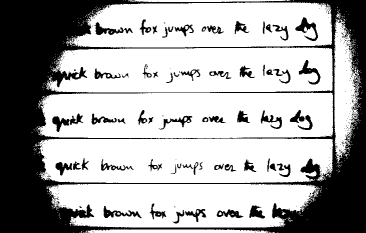 brown fox jumps over the lazy dog
quick brown fox jumps over the lazy dog
quick brown fox jumps over the lazy dog
quick brown fox jumps over the lazy dog
quick brown fox jumps over the